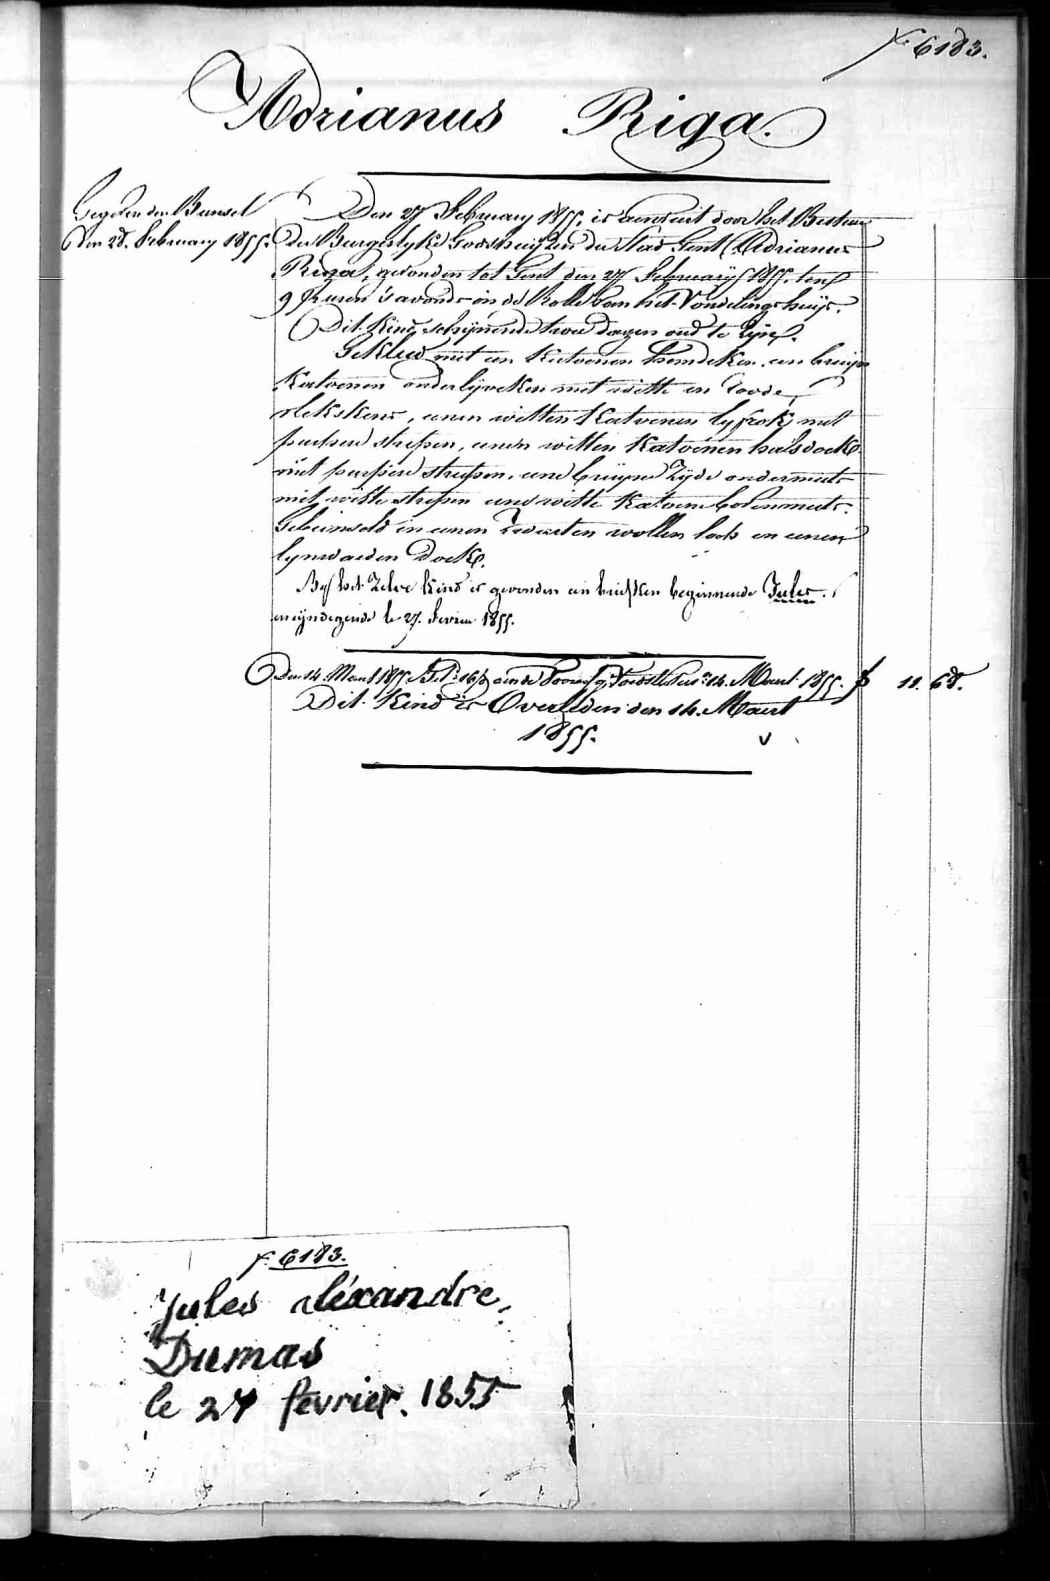 F 6183.
Adrianus Riga.
Gegeven den Bunsel
den 28. February 1855.
Den 27 February 1855. is aenveird door het Bestuer
der Burgerlyke Godshuijzen der Stad Gent, Adrianus
Riga, gevonden tot Gent den 27 February 1855. ten
9 uren 's avonds in de Rolle van het Vondelingshuijs.
Dit Kind schijnende twee dagen oud te zijn.
Gekleed met een Katoenen hemdeken, een bruijn
Katoenen onderlijveken met witte en roode
vlekskens, eenen witten Katoenen lyfrok met
purpere strepen, eenen witten Katoenen halsdoek
met purpere strepen, eene bruijne Zijde ondermuts
met witte strepen eene witte Katoene bovenmuts.
Gebunseld in eenen wollen lap en eenen
lynwaeden Doek.
By het Zelve Kind is gevonden een briefken beginnende Jules
en eijndigende le 27. Fevrier 1855.
Den 14. Maert 1855 14. Maert 1855. F 11. 68.
Dit Kind is Overleden den 14. Maert
1855.
F. 6183.
Jules aléxandre
Dumas
le 27 février. 1855